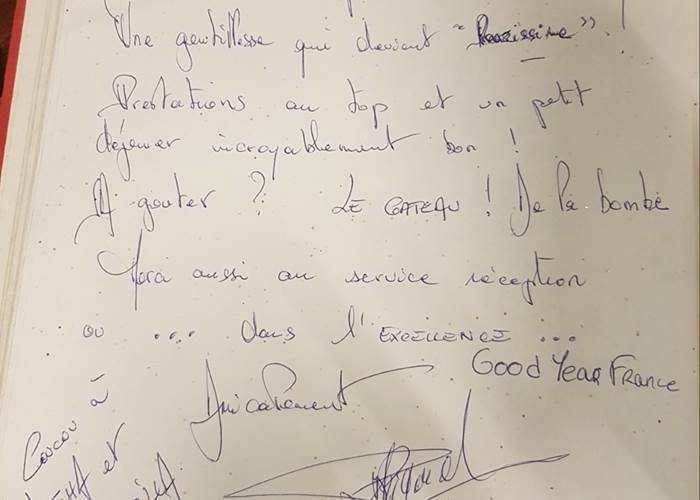 Une gentillesse qui devient "Rarissime".
Prestations au top et un petit
déjeuner incroyablement bon !
A goûter ? LE GATEAU ! De la bombe
aussi au service réception
ou ... dans l'EXCELLENCE ...
Good Year France
Amicalement
Coucou à
et